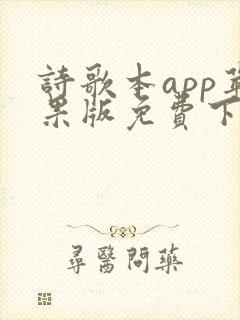 詩歌本app苹
果版免費下
尋醫問藥